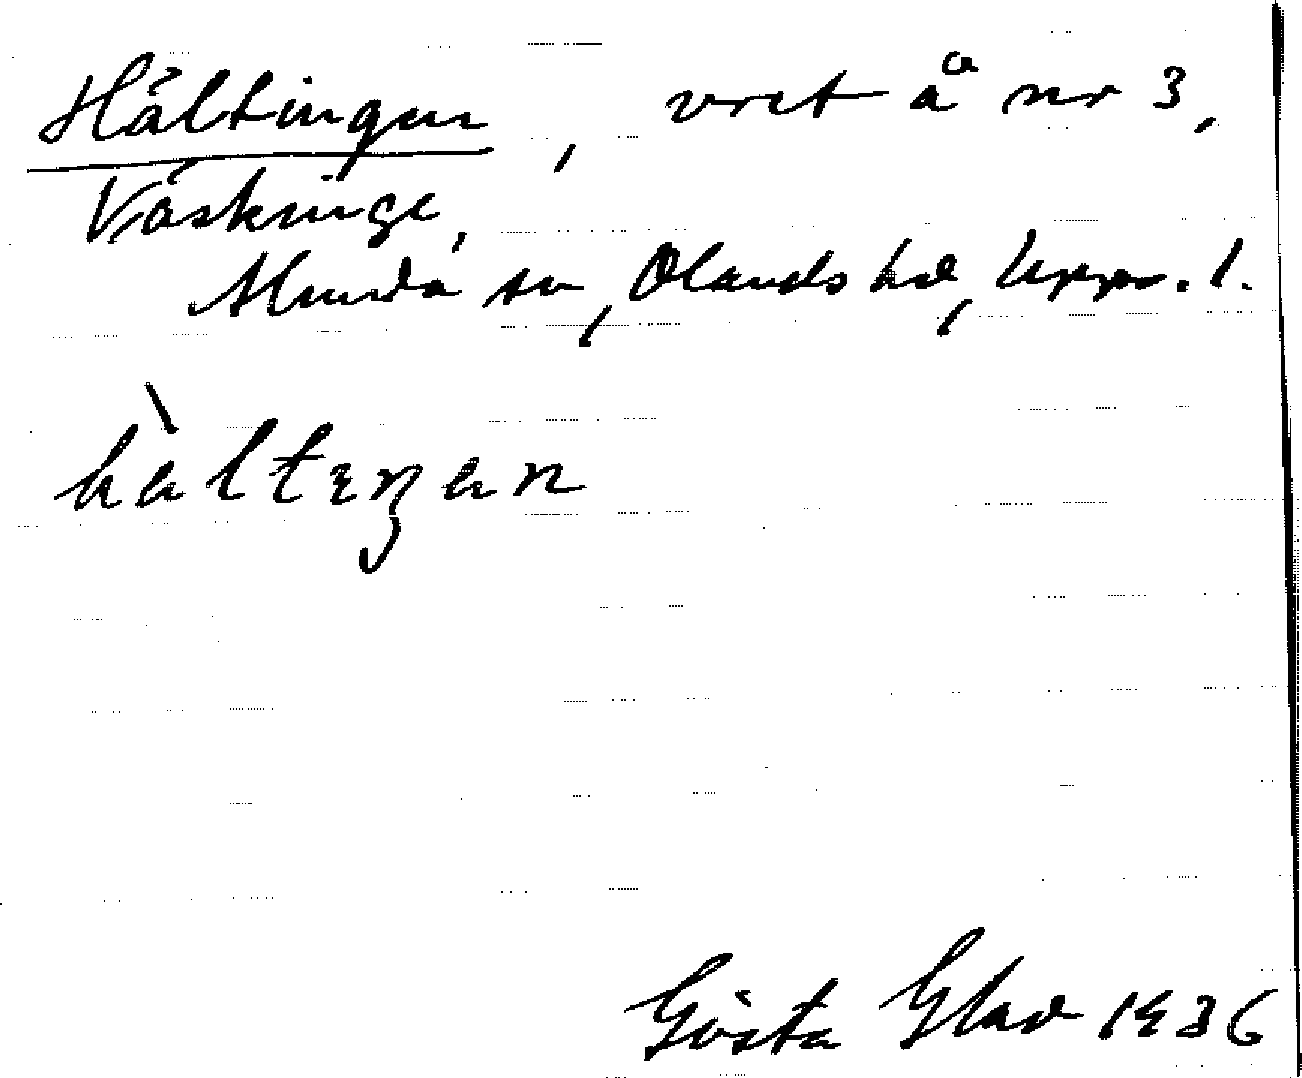 Hältingen, vret å nr 3,
Väskinge,
Almunda sn, Olands hd, Upps. l.
hàltıŋan
Gösta Glad 1936